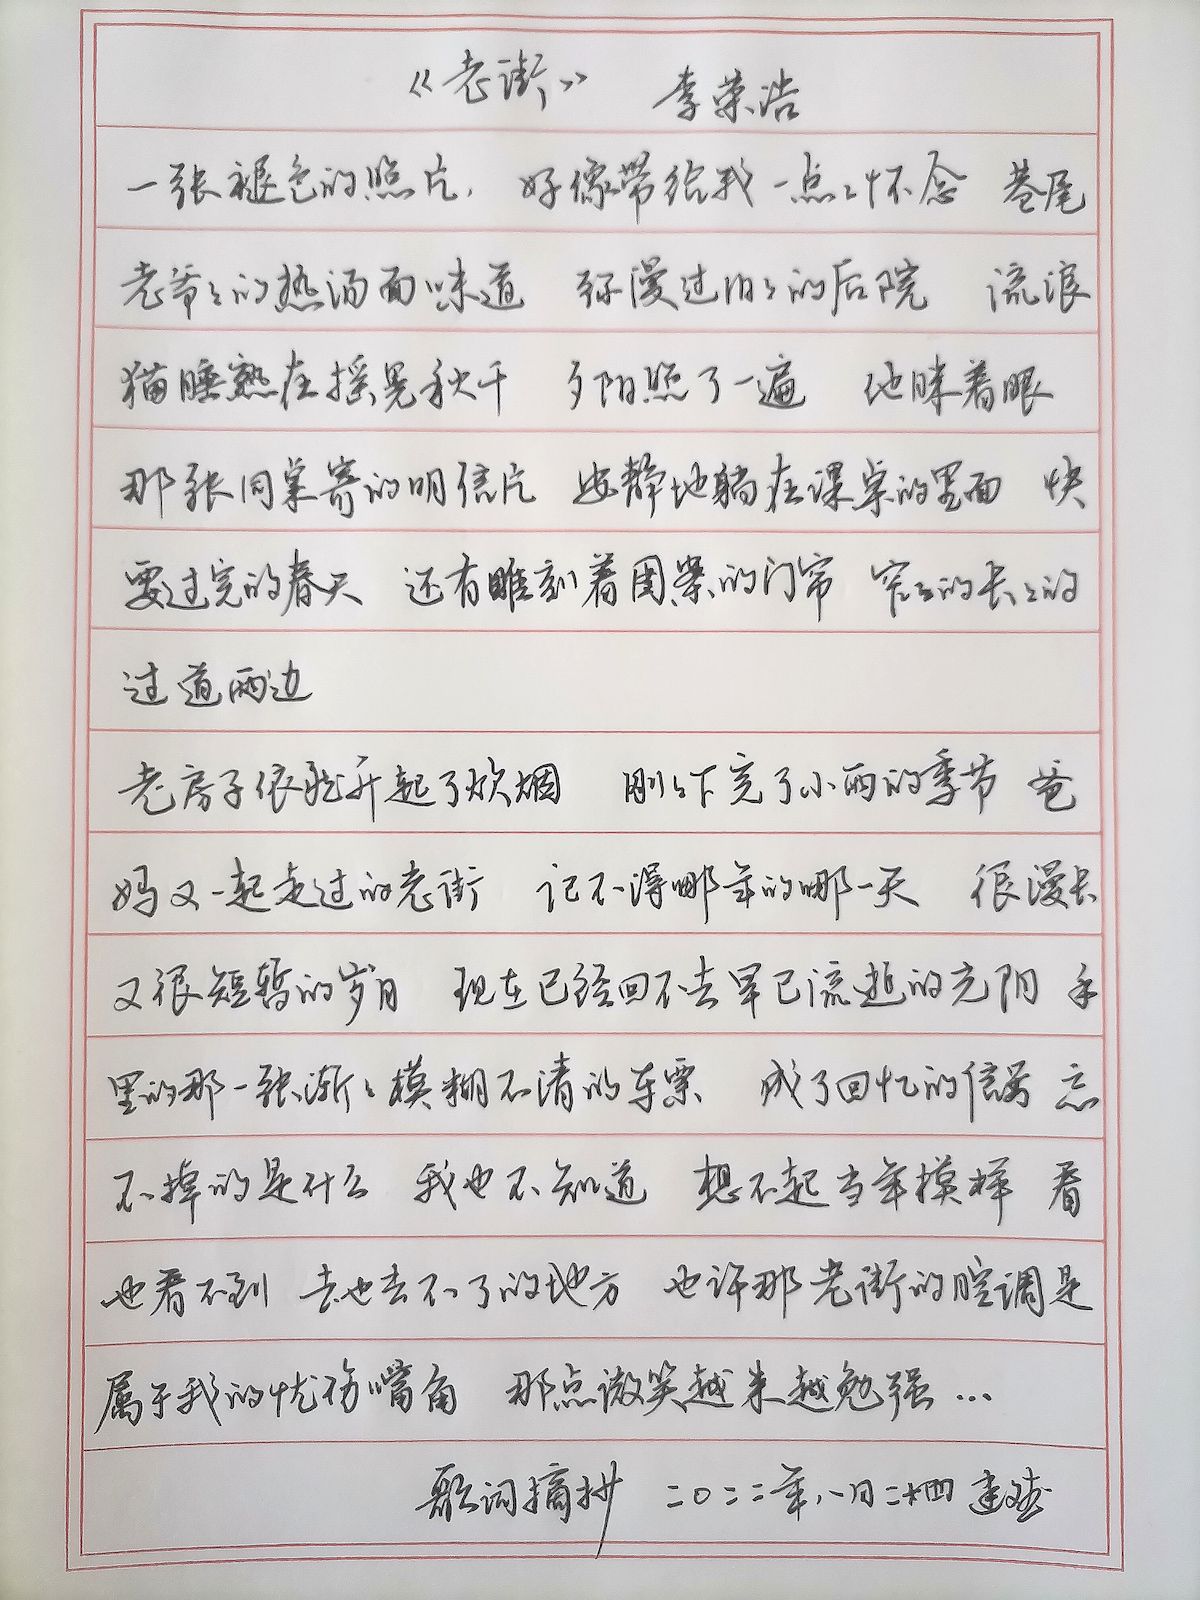 《老街》 李荣浩
一张褪色的照片， 好像带给我一点点怀念 巷尾
老爷爷的热汤面味道 弥漫过旧旧的后院 流浪
猫睡熟在摇晃秋千 夕阳照了一遍 他眯着眼
那张同桌寄的明信片 安静地躺在课桌的里面 快
要过完的春天 还有雕刻着图案的门帘 窄窄的长长的
过道两边
老房子依然升起了炊烟 刚刚下完了小雨的季节 爸
妈又一起走过的老街 记不得哪年的哪一天 很漫长
又很短暂的岁月 现在已经回不去早已流逝的光阴 手
里的那一张渐渐模糊不清的车票 成了回忆的信号 忘
不掉的是什么 我也不知道 想不起当年模样 看
也看不到 去也去不了的地方 也许那老街的腔调是
属于我的忧伤嘴角 那点微笑越来越勉强…
歌词摘抄 二〇二二年八月二十四